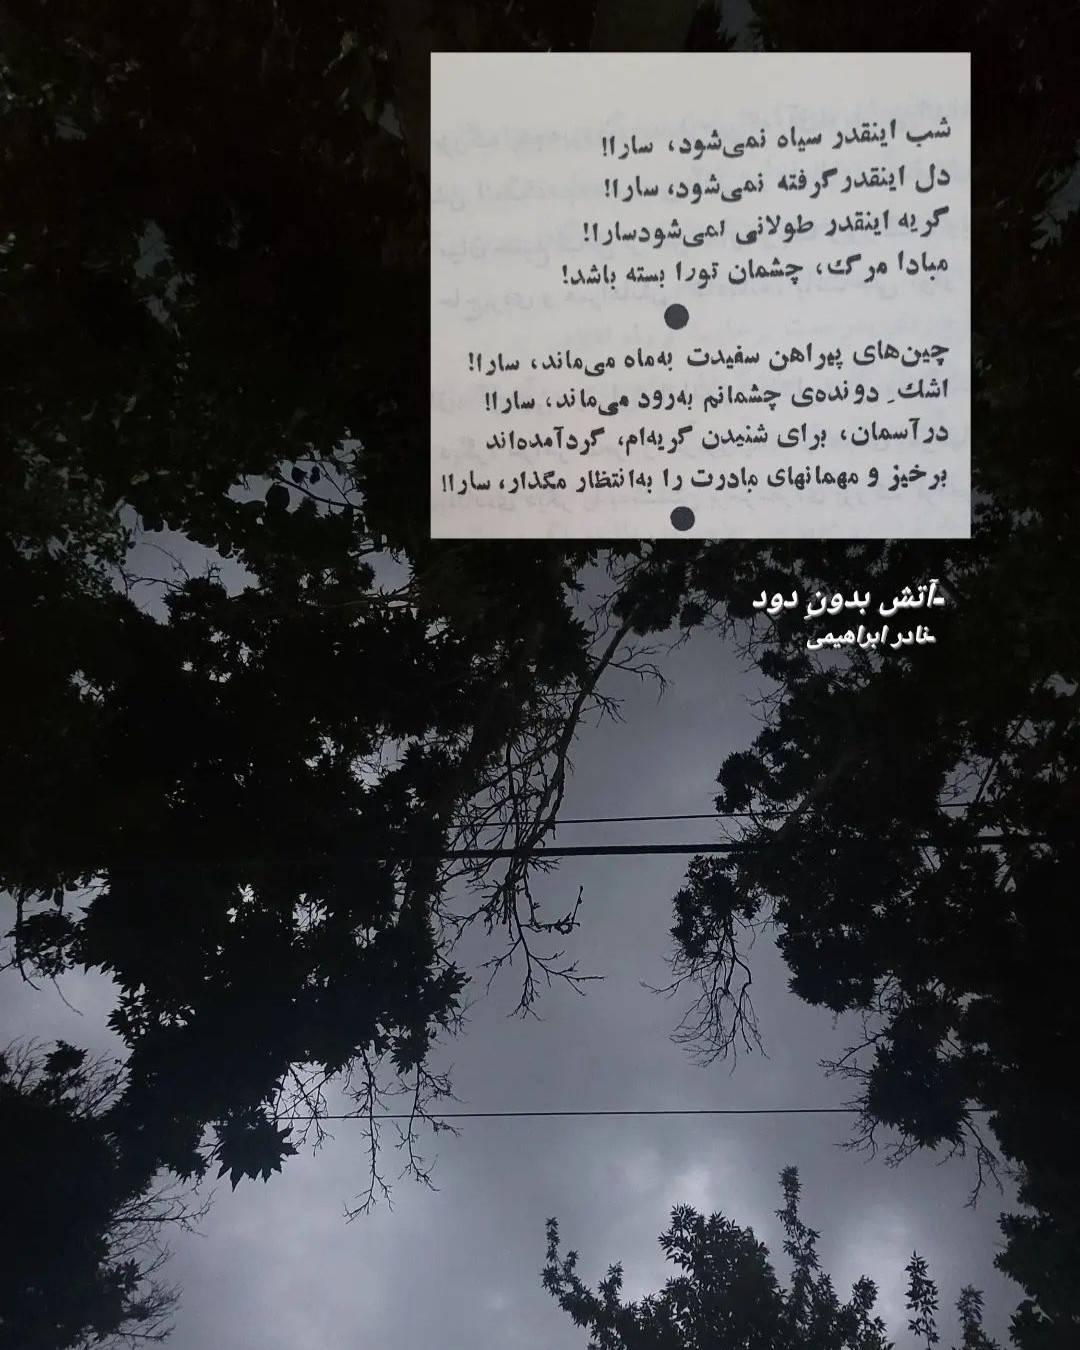 شب اینقدر سیاه نمی‌شود، سارا!
دل اینقدر گرفته نمی‌شود، سارا!
گریه اینقدر طولانی نمی‌شودسارا!
مبادا مرگ، چشمان تورا بسته باشد!
●
چین‌های پیراهن سفیدت به‌ماه می‌ماند، سارا!
اشك‌ِ دونده‌ی چشمانم به‌رود می‌ماند، سارا!
درآسمان، برای شنیدن گریه‌ام، گردآمده‌اند
برخیز و مهمانهای مادرت را به‌انتظار مگذار، سارا!
●
-آتش بدونِ دود
-نادر ابراهیمی